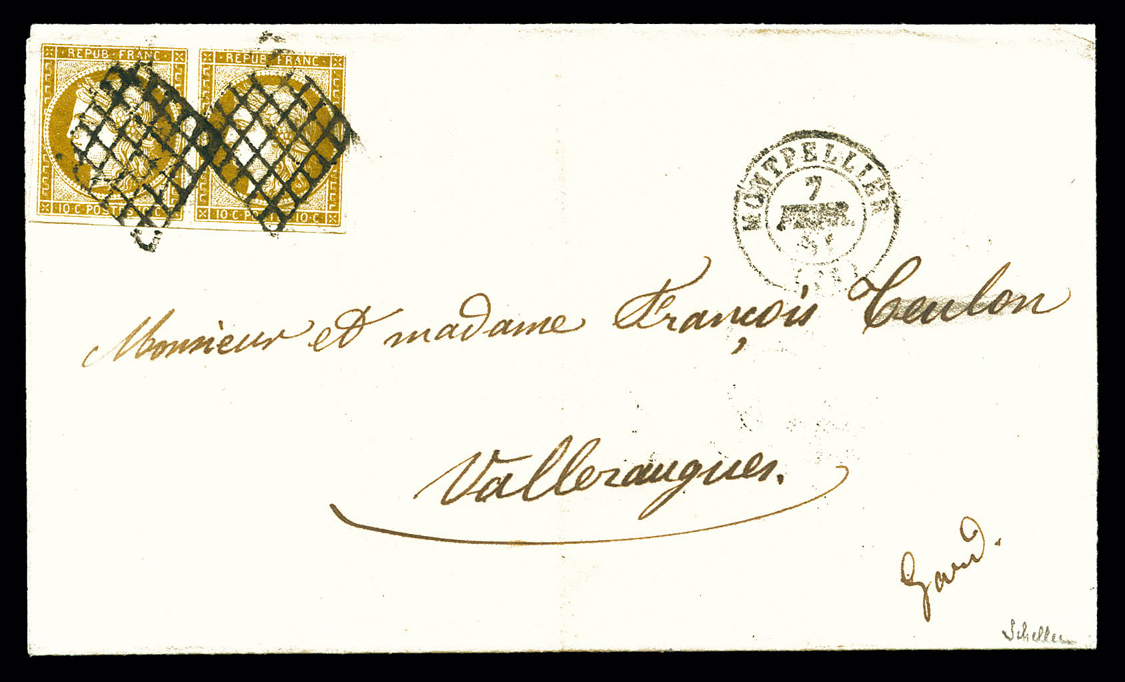 REPUB·FRANC·
10·C·POSTES·10·C·
REPUB·FRANC·
10·C·POSTES·10·C·
MONTPELLIER
7
FEVR.
51
Monsieur et madame François Teulon
Valleraugues.
Gard.
Scheller